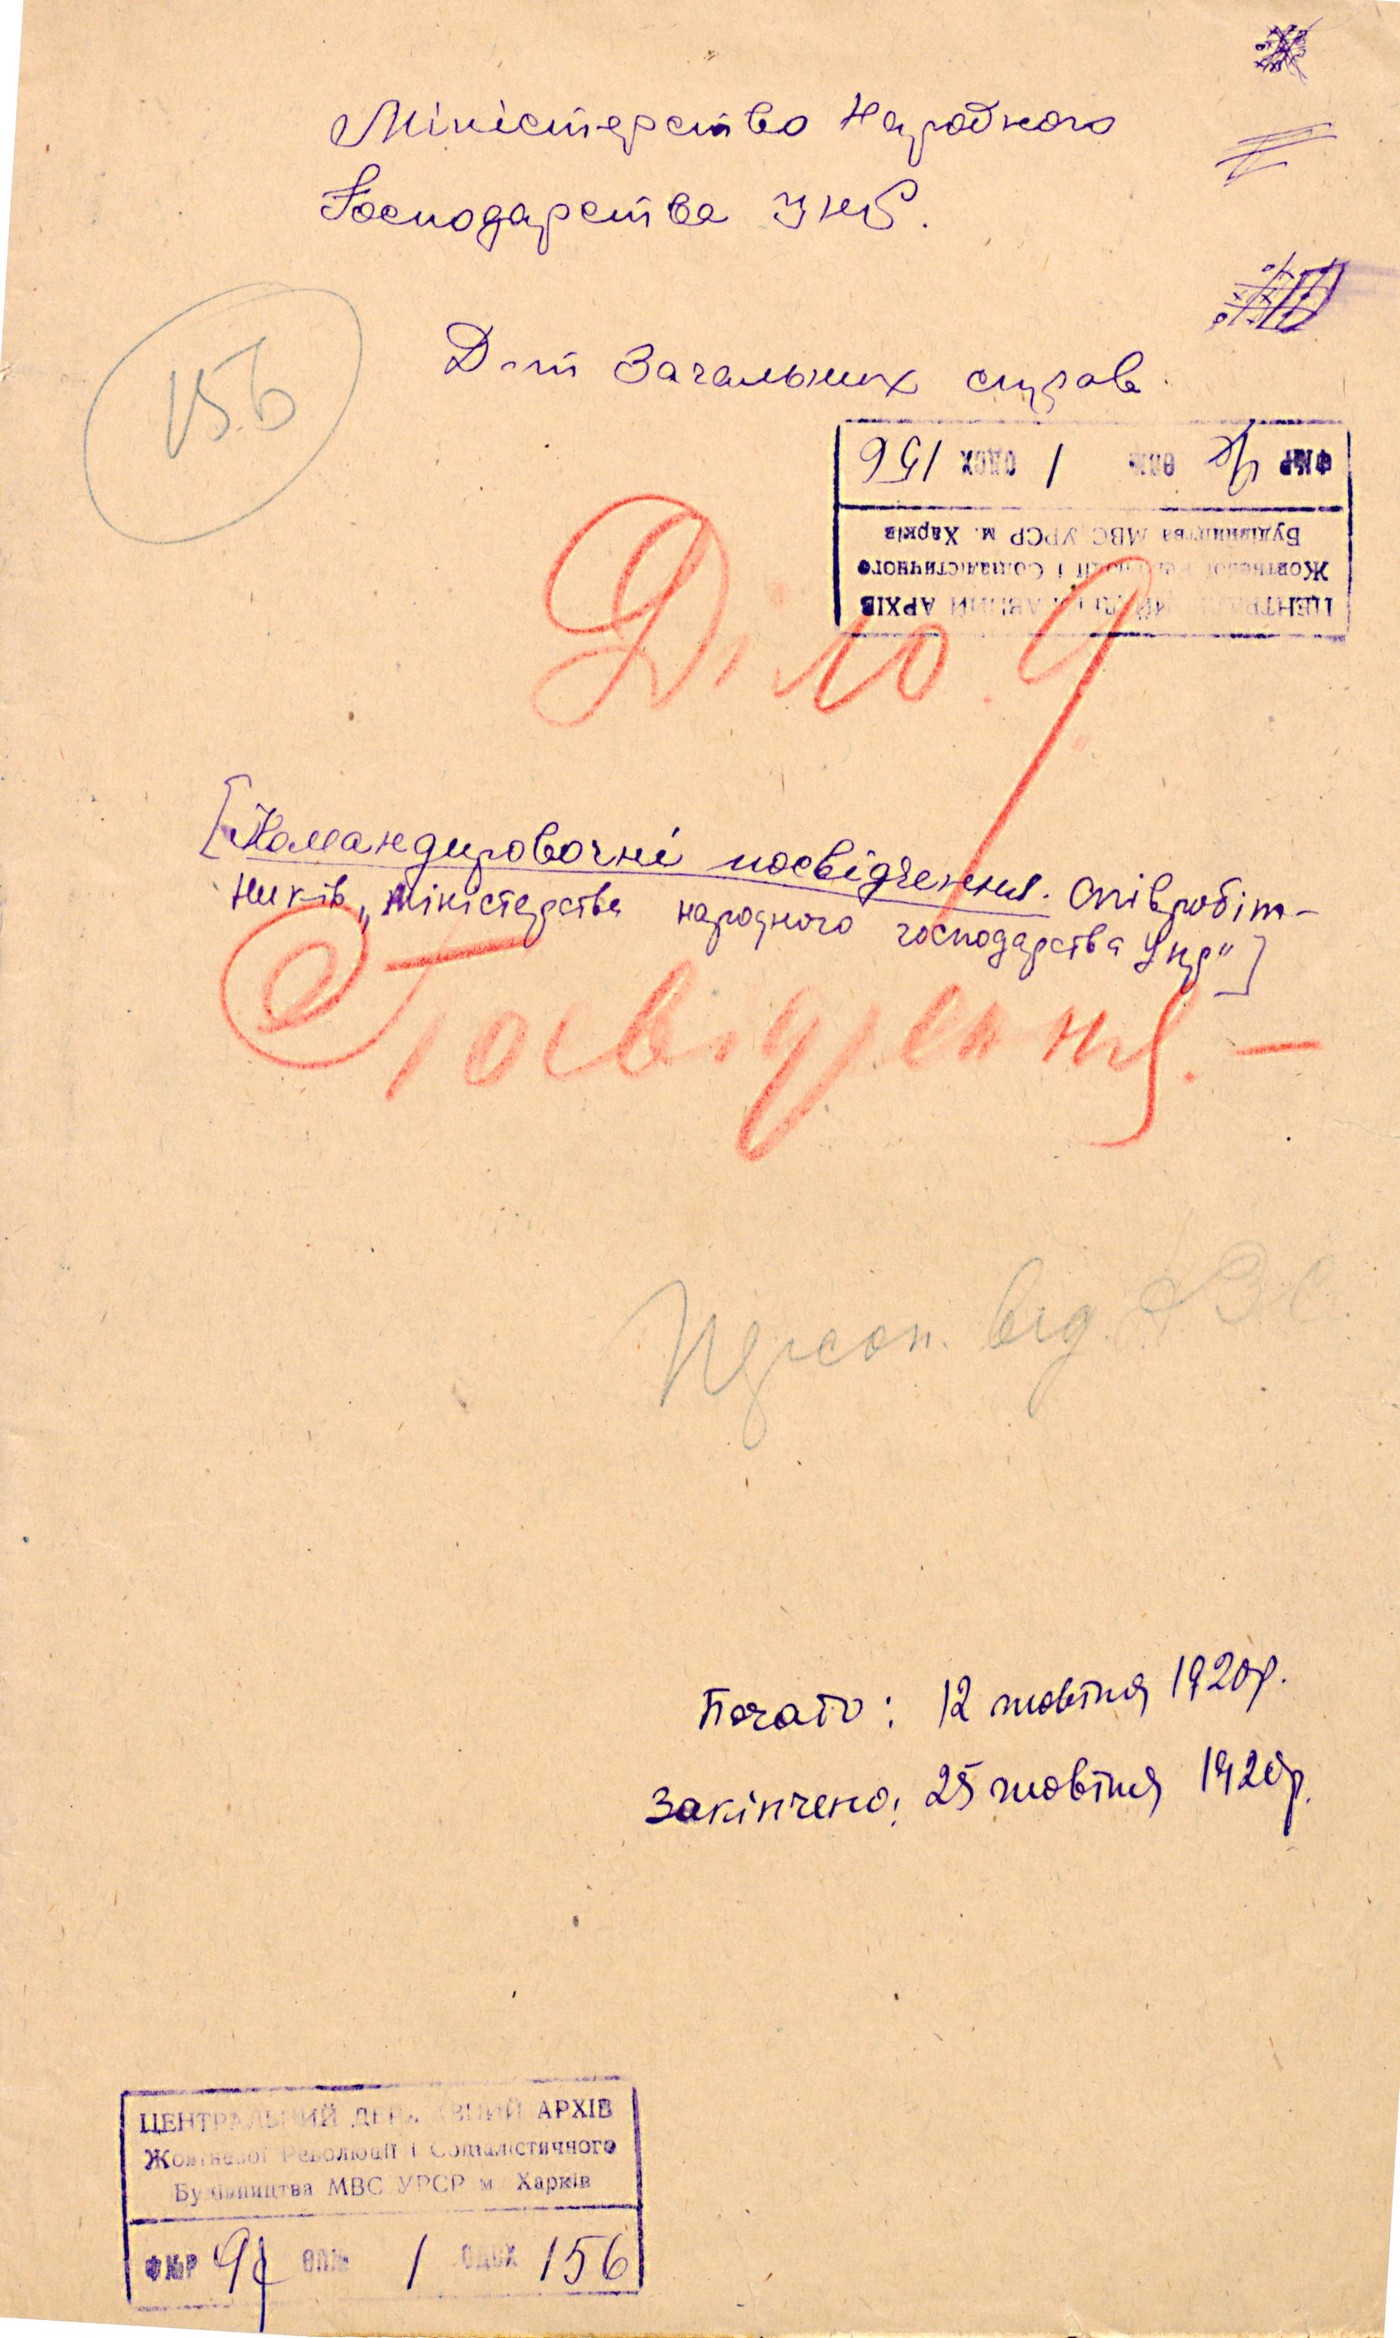 Міністерство Народного
Господарства УНР.
156
Д-т Загальних справ.
ФЖР ОПЖ 1 ОДОХ 156
ЦЕНТРАЛЬНИЙ ДЕРЖАВНИЙ АРХІВ
Жовтневої Революції і Соціалістичного
Будівництва МВС УРСР м. Харків
Діло 9
[Командировочні посвідчення. співробіт-
ників „Міністерства народного господарства Унр"]
Посвідчення. —
Персон. від. ДЗС.
Почато: 12 жовтня 1920р.
Закінчено: 25 жовтня 1920р.
ЦЕНТРАЛЬНИЙ ДЕРЖАВНИЙ АРХІВ
Жовтневої Революції і Соціалістичного
Будівництва МВС УРСР м Харків
ФЖР ОПЖ 1 ОДОХ 156